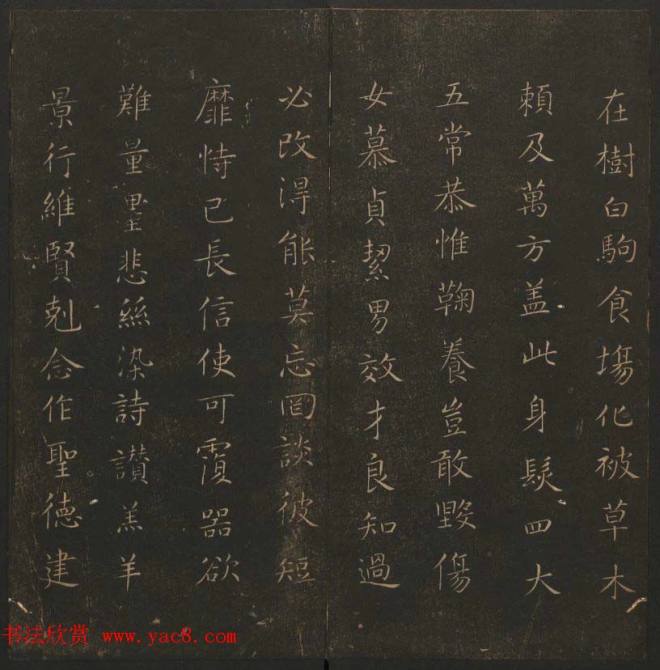 在樹白駒食場化被草木
賴及萬方盖此身髮四大
五常恭惟鞠養豈敢毀傷
女慕貞絜男效才良知過
必改得能莫忘罔談彼短
靡恃己長信使可覆器欲
難量墨悲絲染詩讃羔羊
景行維賢剋念作聖德建
书法欣赏 www.yac8.com